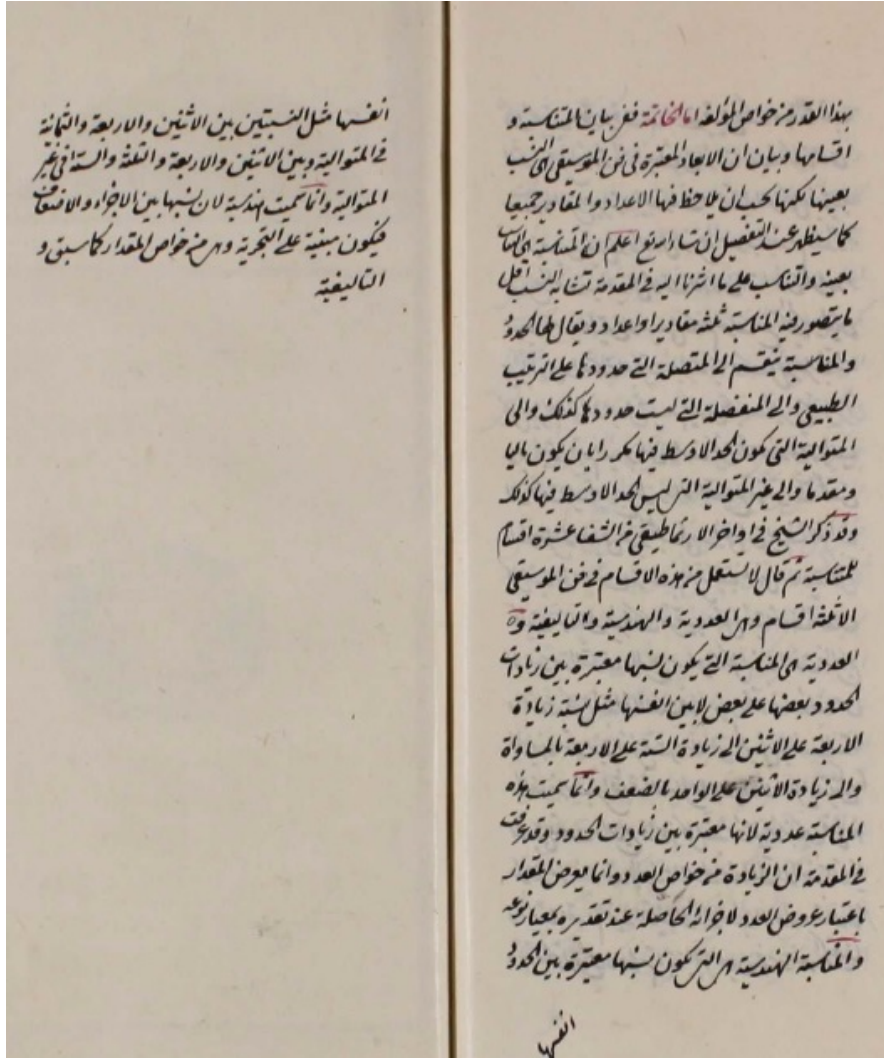 بهذا القدر من خواص المؤلفة اما الخاتمة ففى بيان المتناسبة و
اقسامها وبيان ان الابعاد المعتبرة فى فن الموسيقى هى النسب
بعينها لكنها يجب ان يلاحظ فيها الاعداد والمقادير جميعا
كما سيظهر عند التفصيل ان شاء الله تع اعلم ان المتناسبة هى
بعينه والتناسب على ما اشرنا اليه فى المقدمة تشابه النسب اقل
ما يتصور فيه المناسبة ثلثة مقادير او اعداد ويقال لها الحدود
والمناسبة ينقسم الى المتصلة التى حدودها على الترتيب
الطبيعى والى المنفصلة التى ليست حدودها كذلك والى
المتوالية التى يكون الحد الاوسط فيها مكررا بان يكون تاليا
ومقدما والى غير المتوالية التى ليس الحد الاوسط فيها كذلك
وقد ذكر الشيخ فى اواخر الارثماطيقى من الشفا عشرة اقسام
للمتناسبة ثم قال لا تستعمل من هذه الاقسام فى فن الموسيقى
الا ثلثة اقسام وهى العددية والهندسية والتاليفية
العددية هى المناسبة التى يكون نسبها معتبرة بين زيادات
الحدود بعضها على بعض لا بين انفسها مثل نسبة زيادة
الاربعة على الاثنين الى زيادة الستة على الاربعة بالمساواة
والى زيادة الاثنين على الواحد بالضعف وانما سميت هذه
المناسبة عددية لانها معتبرة بين زيادات الحدود وقد عرفت
فى المقدمة ان الزيادة من خواص العدد وانما يعرض المقدار
باعتبار عروض العدد لاجزائه الحاصلة عند تقديره بمعيار نوعه
والمناسبة الهندسية هى التى يكون نسبها معتبرة بين الحدود
انفسها
انفسها مثل النسبتين بين الاثنين والاربعة والثمانية
فى المتوالية وبين الاثنين والاربعة والثلثة والستة فى غير
المتوالية وانما سميت هندسية لان نسبها بين الاجزاء والاضعاف
فيكون مبنية على التجزية وهى من خواص المقدار كما سبق و
التاليفية